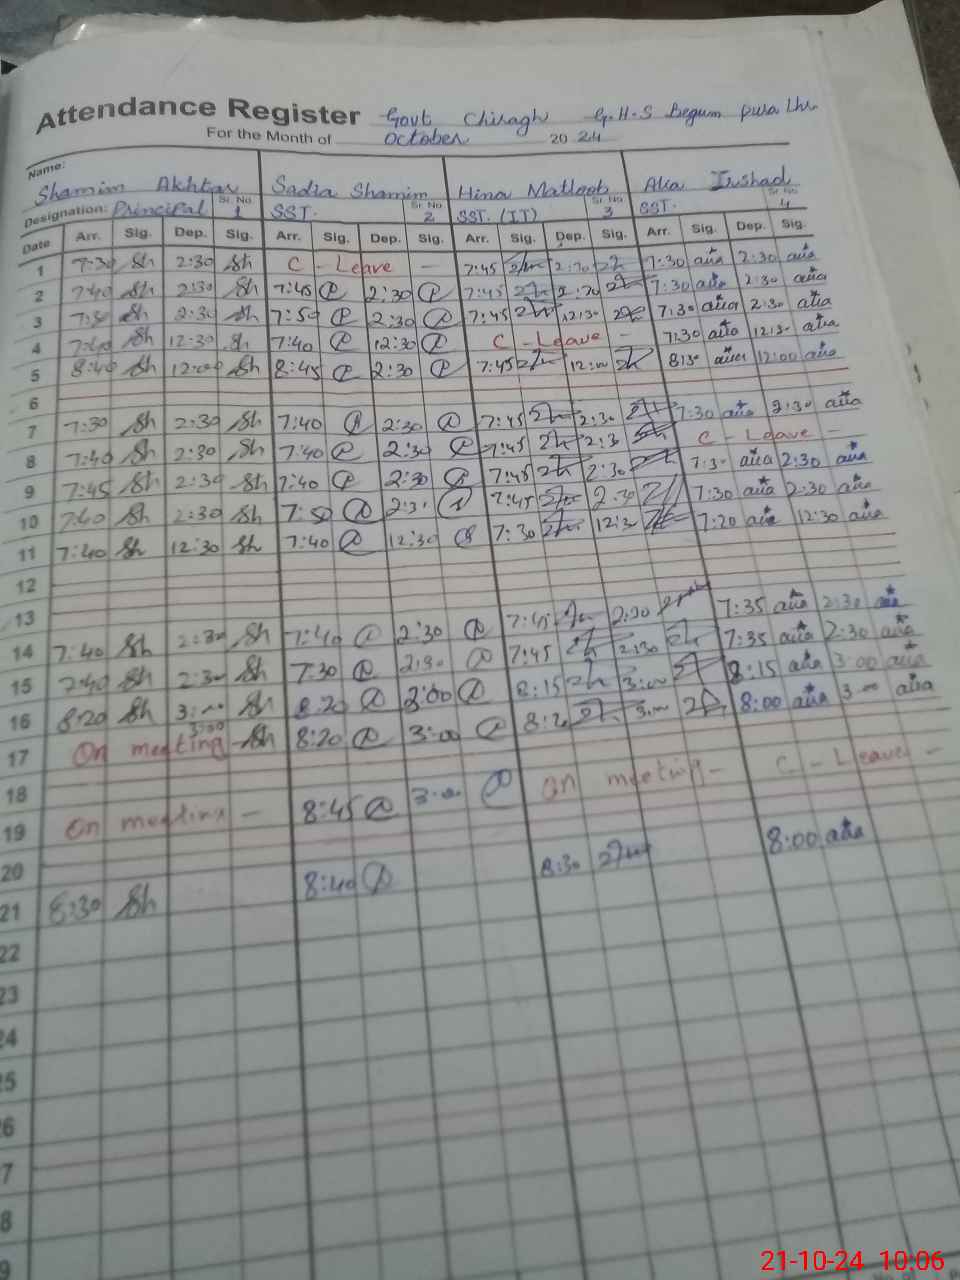 Attendance Register Govt Chiragh G.H.S Begum pura Lhr
For the Month of October 2024
Name: Shamim Akhtar Sadia Shamim Hina Matloob Alia Irshad
Designation: Principal Sr. No. 1 SST. Sr. No. 2 SST. (IT) Sr. No. 3 SST. Sr. No. 4
Date Arr. Sig. Dep. Sig. Arr. Sig. Dep. Sig. Arr. Sig. Dep. Sig. Arr. Sig. Dep. Sig.
1 7:30 Sh 2:30 Sh C - Leave - 7:45 2:30 7:30 alia 2:30 alia
2 7:40 Sh 2:30 Sh 7:45 2:30 7:45 2:30 7:30 alia 2:30 alia
3 7:50 Sh 2:30 Sh 7:50 2:30 7:45 12:30 7:30 alia 2:30 alia
4 7:40 Sh 12:30 Sh 7:40 12:30 C - Leave - 7:30 alia 12:30 alia
5 8:40 Sh 12:00 Sh 8:45 2:30 7:45 12:00 8:30 alia 12:00 alia
6
7 7:30 Sh 2:30 Sh 7:40 2:30 7:45 2:30 7:30 alia 2:30 alia
8 7:40 Sh 2:30 Sh 7:40 2:30 7:45 2:3 C - Leave -
9 7:45 Sh 2:30 Sh 7:40 2:30 7:45 2:30 7:30 alia 2:30 alia
10 7:40 Sh 2:30 Sh 7:50 2:3 7:45 2:30 7:30 alia 2:30 alia
11 7:40 Sh 12:30 Sh 7:40 12:30 7:30 12:3 7:20 alia 12:30 alia
12
13
14 7:40 Sh 2:30 Sh 7:40 2:30 7:45 2:30 7:35 alia 2:30 alia
15 7:40 Sh 2:30 Sh 7:30 2:30 7:45 2:30 7:35 alia 2:30 alia
16 8:20 Sh 3:00 Sh 8:20 3:00 8:15 3:00 8:15 alia 3:00 alia
17 On meeting 3:00 Sh 8:20 3:00 8:2 3:00 8:00 alia 3:00 alia
18
19 On meeting - 8:45 3:00 On meeting - C - Leave -
20
21 8:30 Sh 8:40 8:30 8:00 alia
22
23
24
25
6
7
8
9
21-10-24 10:06